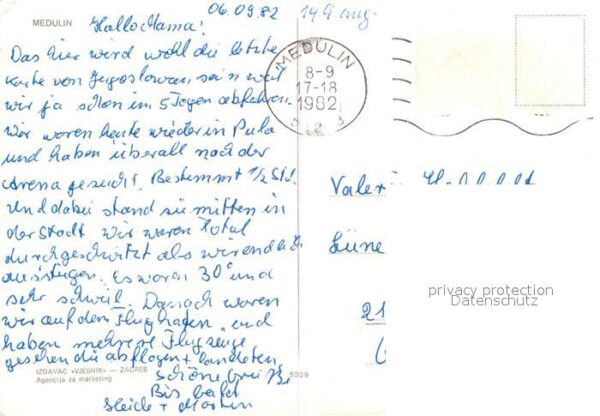 06.09.82 14.9 aug
MEDULIN Hallo Mama!
Das hier wird wohl die letzte
Karte von Jugoslawien sein weil
wir ja schon in 5 Tagen abfahren.
Wir waren heute wieder in Pula
und haben überall nach der
Arena gesucht. Bestimmt 1/2 Std.
Und dabei stand sie mitten in
der Stadt. Wir waren total
durchgeschwitzt als wir endlich
ausstiegen. Es waren 30° und
sehr schwül. Danach waren
wir auf dem Flughafen und
haben mehrere Flugzeuge
gesehen die abflogen + landeten.
Schöne
Bis bald
Heide + Martin
IZDAVAČ «VJESNIK» — ZAGREB
Agencija za marketing
5329
MEDULIN
8-9
17-18
1982
Valeri
Lüne
21
privacy protection
Datenschutz